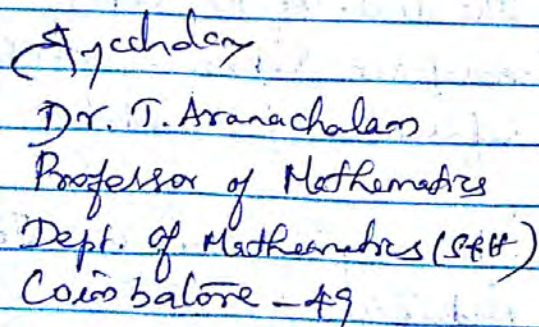 Dr. T. Arunachalam
Professor of Mathematics
Dept. of Mathematics (S&H)
Coimbatore - 49